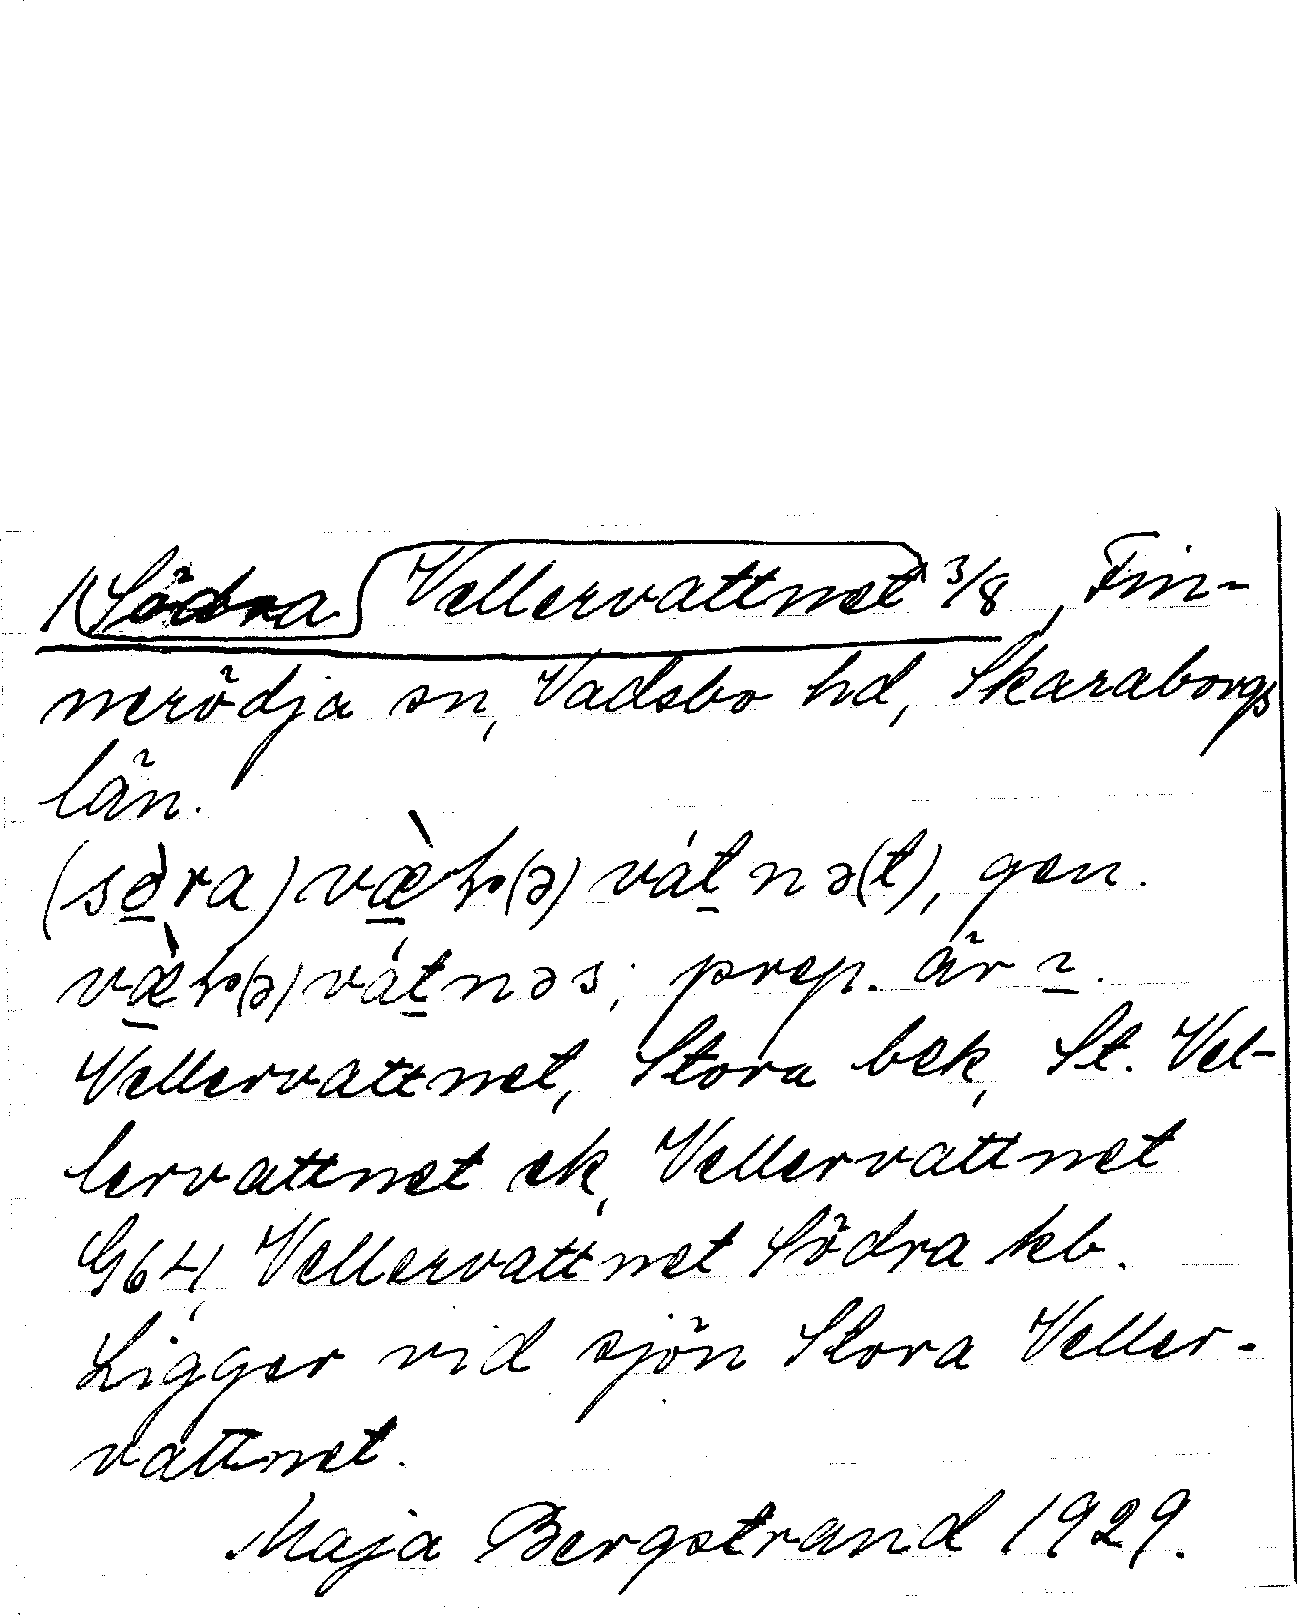 1(Södra Vellervattnet 3/8, Fin-
nerödja sn, Vadsbo hd, Skaraborgs
län.
(sò̱ra) væ̱̀ɫ(ə)vát̲nə(t), gen.
væ̱̀ɫ(ə)vát̲nəs; prep. är ɩ̱.
Vellervattnet, Stora bek, St. Vel-
lervattnet ek, Vellervattnet
G64, Vellervattnet Södra kb.
Ligger vid sjön Stora Veller-
vattnet.
Maja Bergstrand 1929.